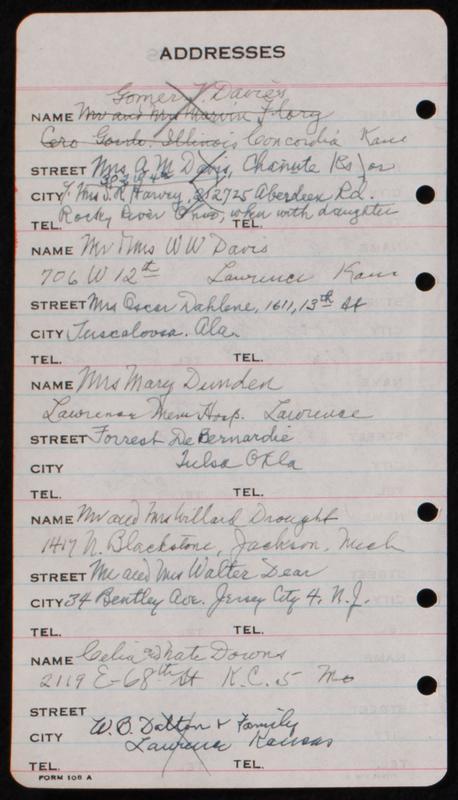 ADDRESSES
Gomer V. Davies
NAME Mr and Mrs Marvin Flory
Cero Gordo. Illinois Concordia Kans
STREET Mrs A. M. Davis, Chanute Ks or
303 W 4th
CITY % Mrs S. R. Harvey, 212725 Aberdeen Rd.
Rocky River Ohio, when with daughter
TEL. TEL.
NAME Mr & Mrs W W Davis
706 W 12th Lawrence Kans
STREET Mrs Oscar Dahlene, 1611, 13th St
CITY Tuscaloosa. Ala.
TEL. TEL.
NAME Mrs Mary Dunden
Lawrence Mem Hosp. Lawrence
STREET Forrest DeBernardie
CITY Tulsa Okla
TEL. TEL.
NAME Mr and Mrs Willard Drought
1417 N. Blackstone, Jackson, Mich
STREET Mr and Mrs Walter Dear
CITY 34 Bentley Ave. Jersey City 4. N.J.
TEL. TEL.
NAME Celia and Nate Downs
2119 E-68th St K.C. 5 Mo
STREET
W. B. Dalton & Family
CITY Lawrence Kansas
TEL. TEL.
FORM 108 A